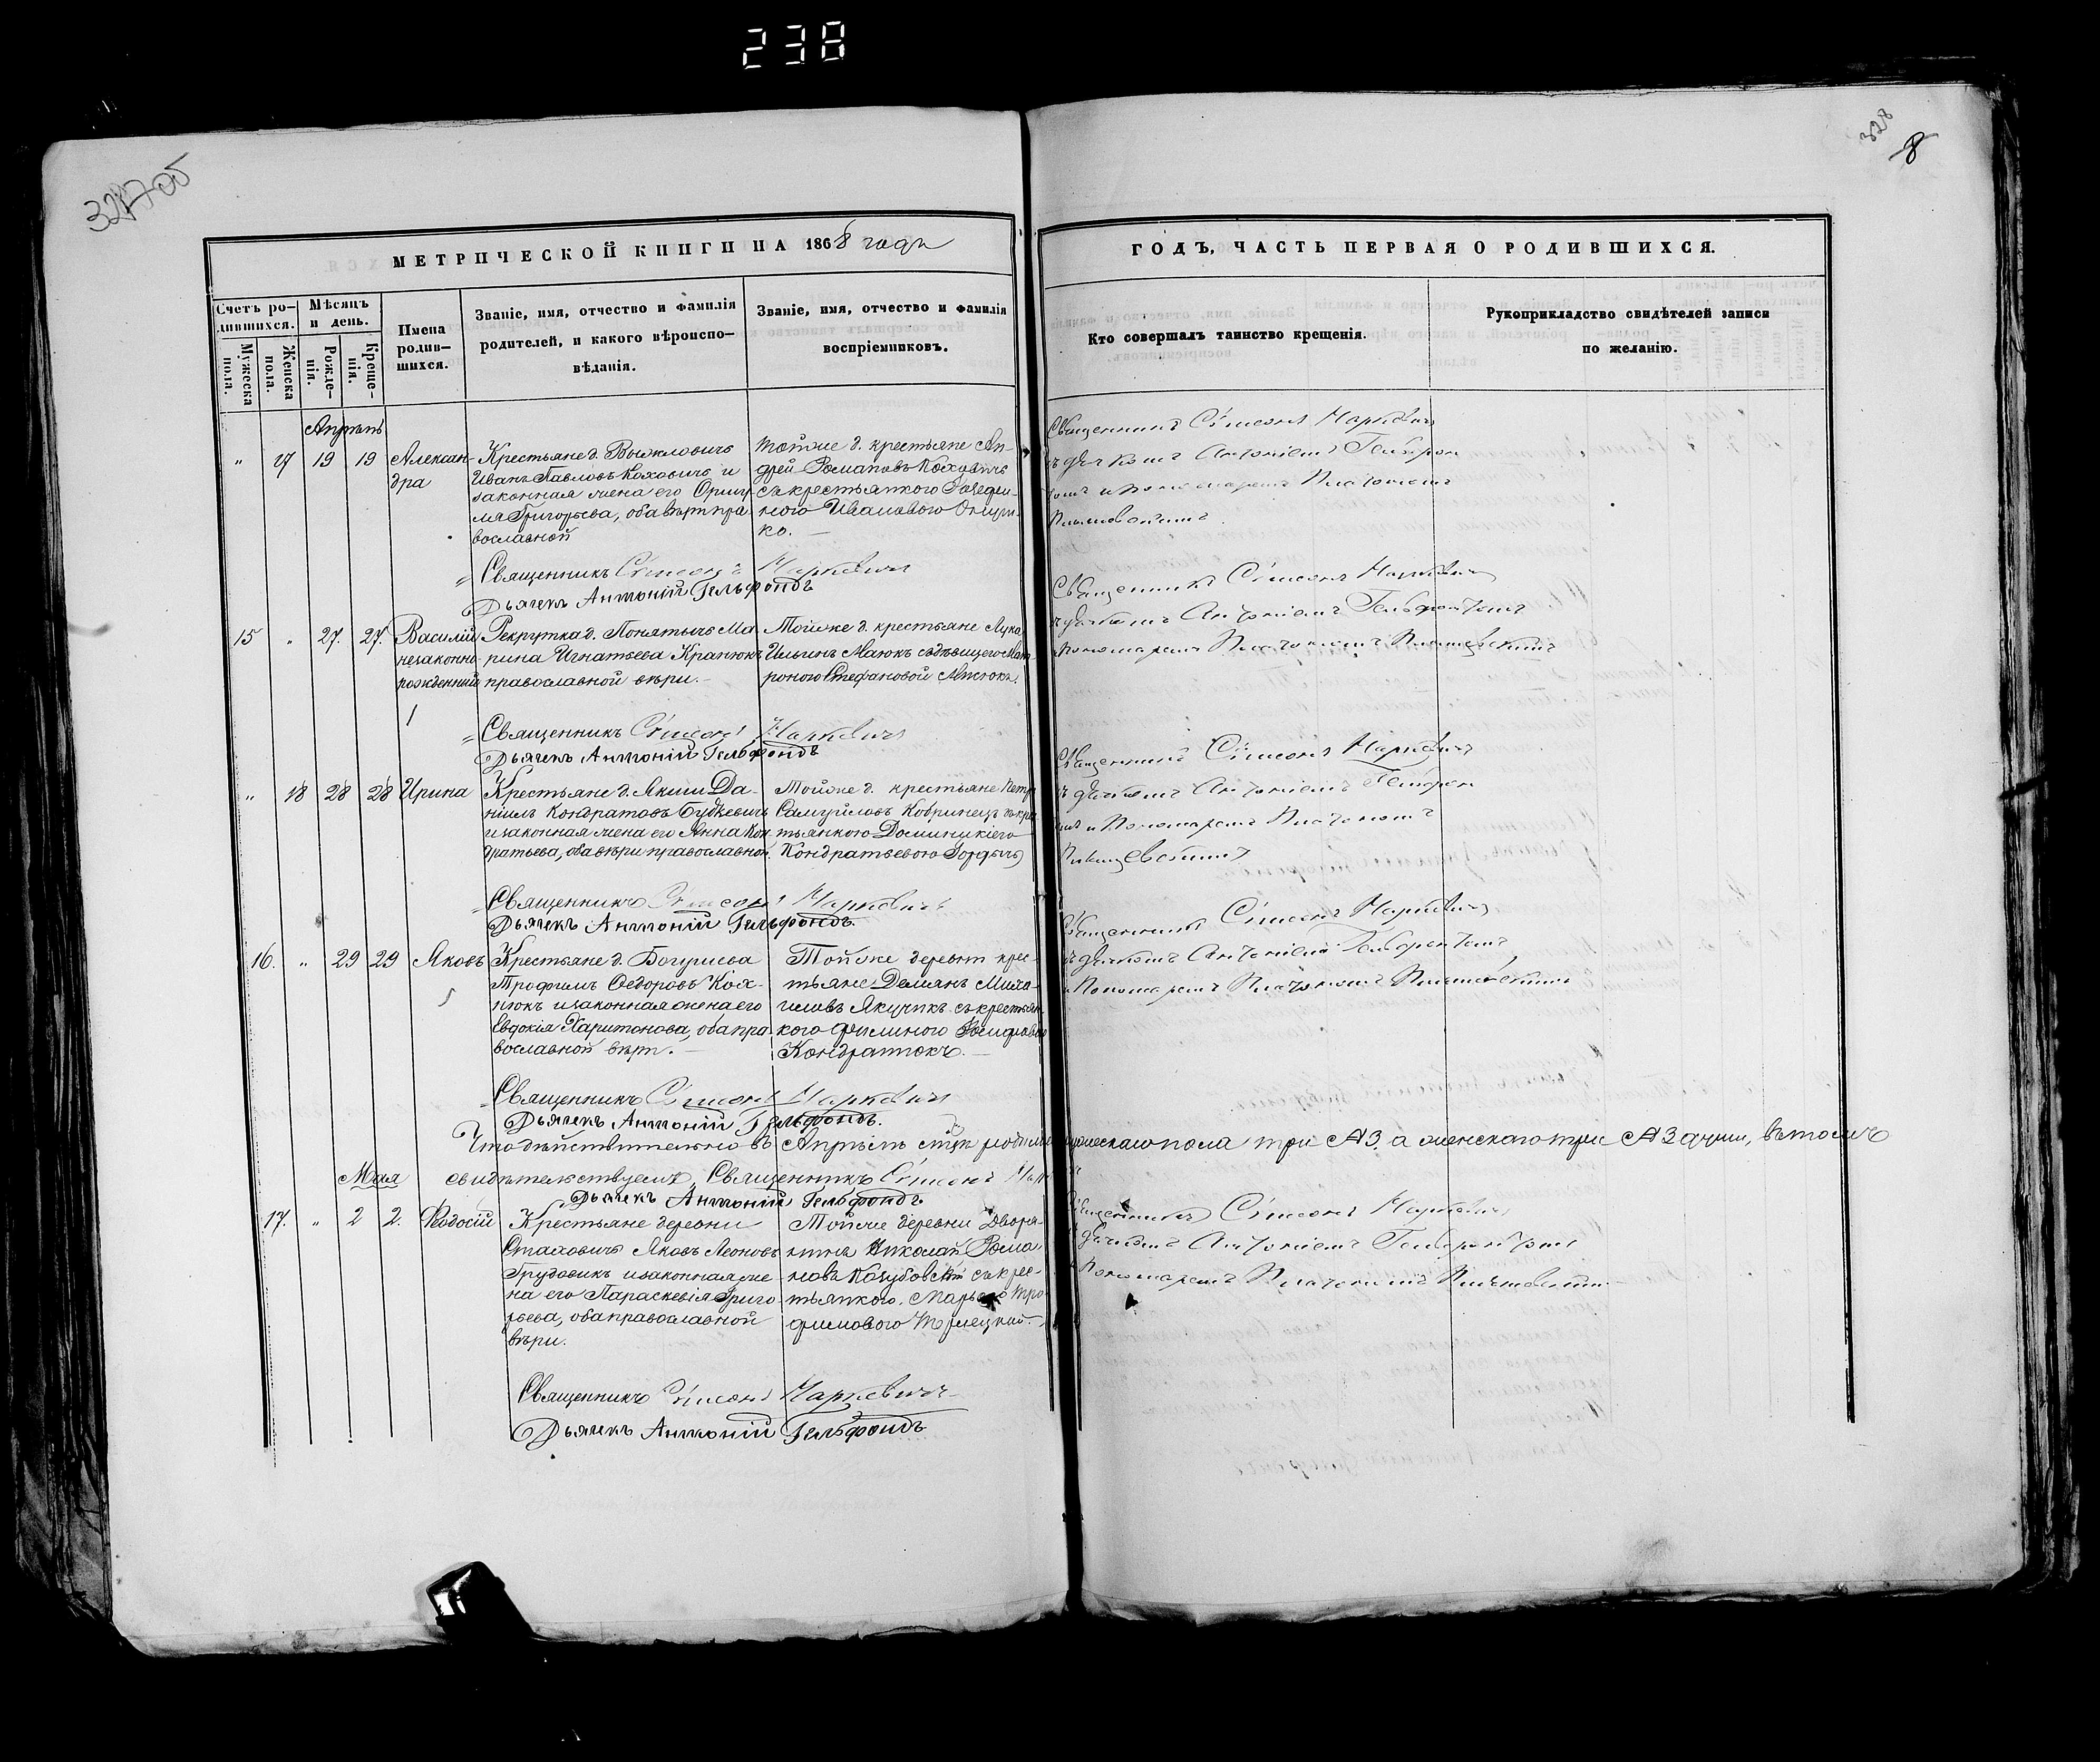 238
328
8
МЕТРИЧЕСКОЙ КНИГИ НА 1868 года
ГОДЪ, ЧАСТЬ ПЕРВАЯ О РОДИВШИХСЯ.
Счетъ ро-
дившихся.
Мѣсяцъ
и день.
Мужеска
пола.
Женска
пола.
Рожде-
нія.
Креще-
нія.
Имена
родив-
шихся.
Званіе, имя, отчество и фамилія
родителей, и какого вѣроиспо-
вѣданія.
Званіе, имя, отчество и фамилія
воспріемниковъ.
Кто совершалъ таинство крещенія.
Рукоприкладство свидѣтелей записи
по желанію.
Апрѣль
" 17 19 19 Алексан-
дра
Крестьяне д. Выжловичъ
Иванъ Павловъ Коховичъ и
законная жена его
Григорьева, оба вѣры пра
вославной
Тойже д. крестьяне Ан-
дрей Романовъ Кохович
съ крестьянкою
Ивановою
ко. —
Священникъ Симеонъ Маркевичъ
съ дьячкомъ Антоніемъ Гельфон
томъ и пономаремъ Платономъ
Священникъ Симеонъ Маркевичъ
Дьячекъ Антоній Гельфондъ
15 " 27. 27. Василій
незаконно
рожденный
Рекрутка д. Понятичъ Ма
рина Игнатьева Кранюкъ
православной вѣры. —
Тойже д. крестьяне Лука
Ильинъ Маюкъ съ дѣвицею Мат
роною Стефановой
Священникъ Симеонъ Маркевичъ
съ дьячкомъ Антоніемъ Гельфонтомъ
и пономаремъ Платономъ
Священникъ Симеонъ Маркевичъ
Дьячекъ Антоній Гельфондъ
" 18 28 28 Ирина
Крестьяне д. Акши Да-
ніилъ Кондратовъ Будкевичъ
и законная жена его Анна Кон
дратьева, оба вѣры православной.
Тойже д. крестьяне Петр
Самуйловъ Кобринецъ съ кре
тьянкою Доминикіею
Кондратьевою
Священникъ Симеонъ Маркевичъ
съ дьячкомъ Антоніемъ Гельфон
томъ и пономаремъ Платономъ
Священникъ Симеонъ Маркевичъ
Дьячекъ Антоній Гельфондъ.
16. " 29 29 Яковъ
Крестьяне д. Богушева
Трофимъ Ѳедоровъ Кох-
нюкъ и законная жена его
Евдокія Харитонова, оба пра
вославной вѣры. —
Тойже деревни крес-
тьяне Демянъ Миха-
иловъ Якучикъ съ крестьян
кою
Кондратюкъ. —
Священникъ Симеонъ Маркевичъ
съ дьячкомъ Антоніемъ Гельфонтомъ
и пономаремъ Платономъ
Священникъ Симеонъ Маркевичъ
Дьячекъ Антоній Гельфондъ.
Что дѣйствительно въ Апрѣлѣ мужескаго пола три №3. а женскаго три №3 души, въ томъ
Мая свидѣтельствуемъ, Священникъ Симеонъ
Дьячекъ Антоній Гельфондъ.
17. " 2 2. Ѳеодосій
Крестьяне деревни
Стаховичъ Яковъ Леоновъ
Грудовикъ и законная же
на его Параскевія Григо
рьева, оба православной
вѣры.
Тойже деревни Дворя-
нинъ Николай Рома
новъ Козубовскій съ крес-
тьянкою. Марьею Тро
фимовою
Священникъ Симеонъ Маркевичъ
съ дьячкомъ Антоніемъ Гельфонтомъ
и пономаремъ Платономъ
Священникъ Симеонъ Маркевичъ
Дьячекъ Антоній Гельфондъ